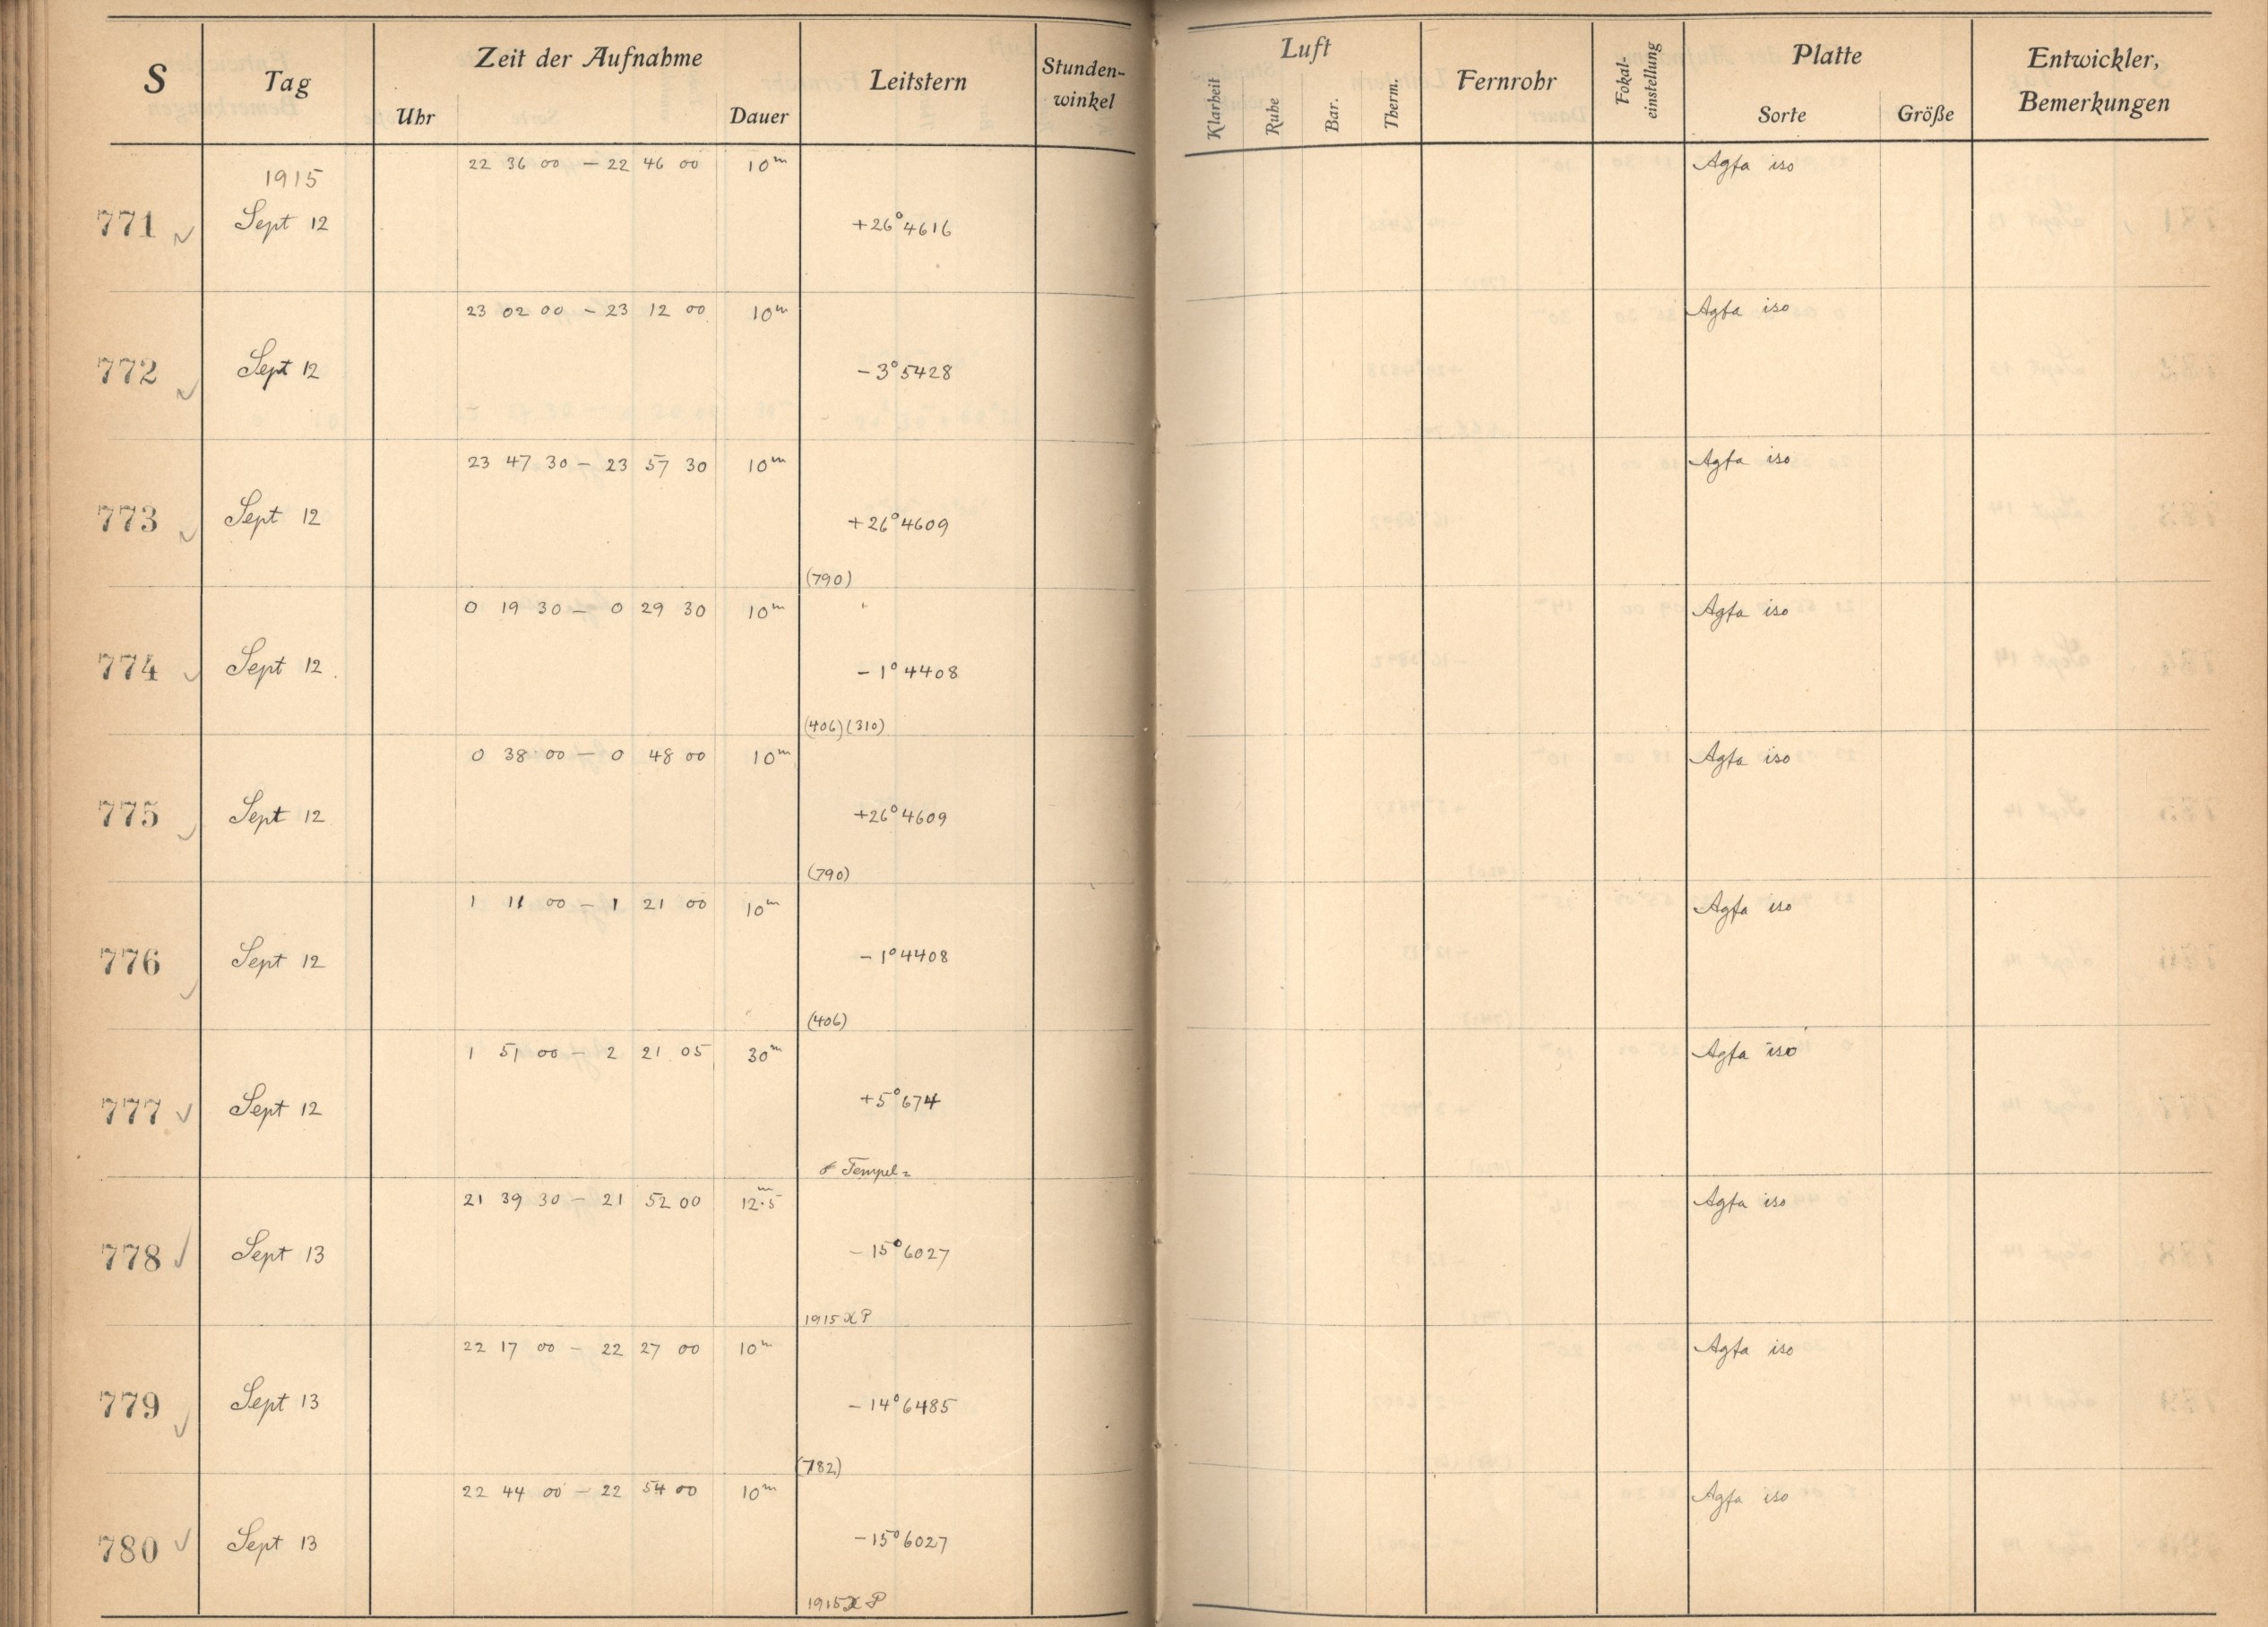 S Tag Zeit der Aufnahme Leitstern Stunden-winkel Luft Fernrohr Fokal-einstellung Platte Entwickler, Bemerkungen
Uhr Dauer Klarheit Ruhe Bar. Therm. Sorte Größe
1915 22 36 00 – 22 46 00 10m Agfa iso
771 Sept 12 +26° 4616
23 02 00 – 23 12 00 10m Agfa iso
772 Sept 12 – 3° 5428
23 47 30 – 23 57 30 10m Agfa iso
773 Sept 12 +26° 4609
(790)
0 19 30 – 0 29 30 10m Agfa iso
774 Sept 12 – 1° 4408
(406) (310)
0 38 00 – 0 48 00 10m Agfa iso
775 Sept 12 +26° 4609
(790)
1 11 00 – 1 21 00 10m Agfa iso
776 Sept 12 – 1° 4408
(406)
1 51 00 – 2 21 05 30m Agfa iso
777 Sept 12 +5° 674
Tempel2
21 39 30 – 21 52 00 12m.5 Agfa iso
778 Sept 13 – 15° 6027
1915 XP
22 17 00 – 22 27 00 10m Agfa iso
779 Sept 13 – 14° 6485
(782)
22 44 00 – 22 54 00 10m Agfa iso
780 Sept 13 – 15° 6027
1915 XP